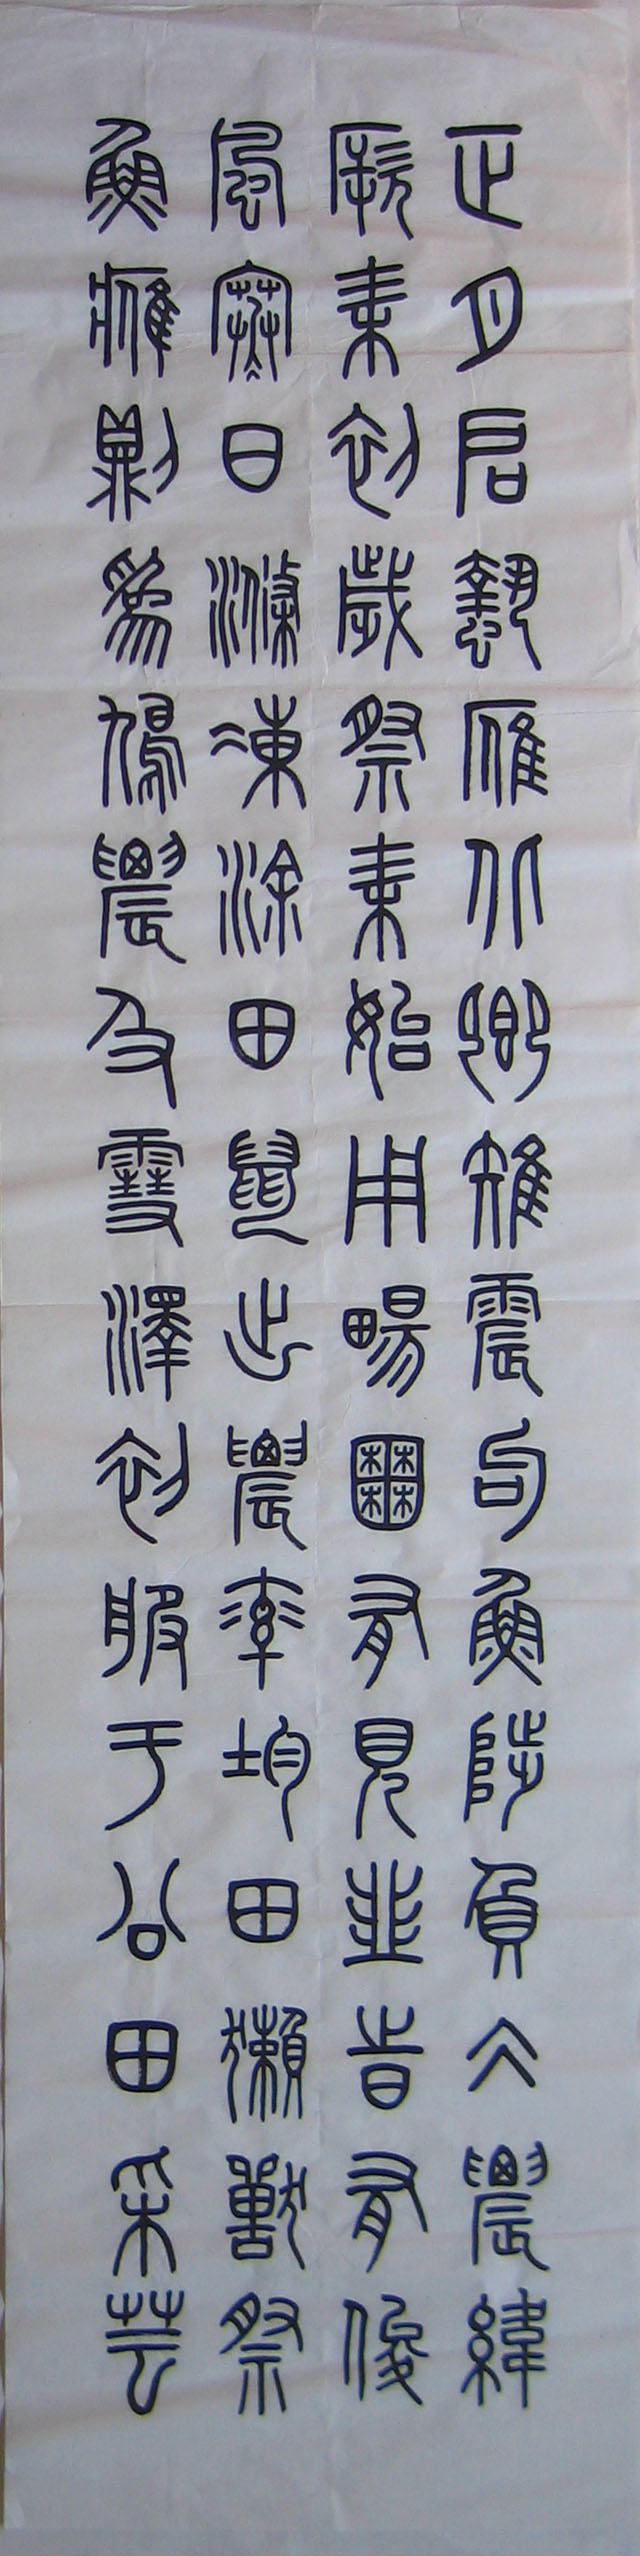 正月启蟄雁北鄉雉震句魚陟負仌農緯
厥耒初歲祭耒始用畼囿有見韭旹有俊
風寒日滌凍涂田鼠出農率均田獺獸祭
魚鷹則為鳩農及雪澤初服于公田采芸